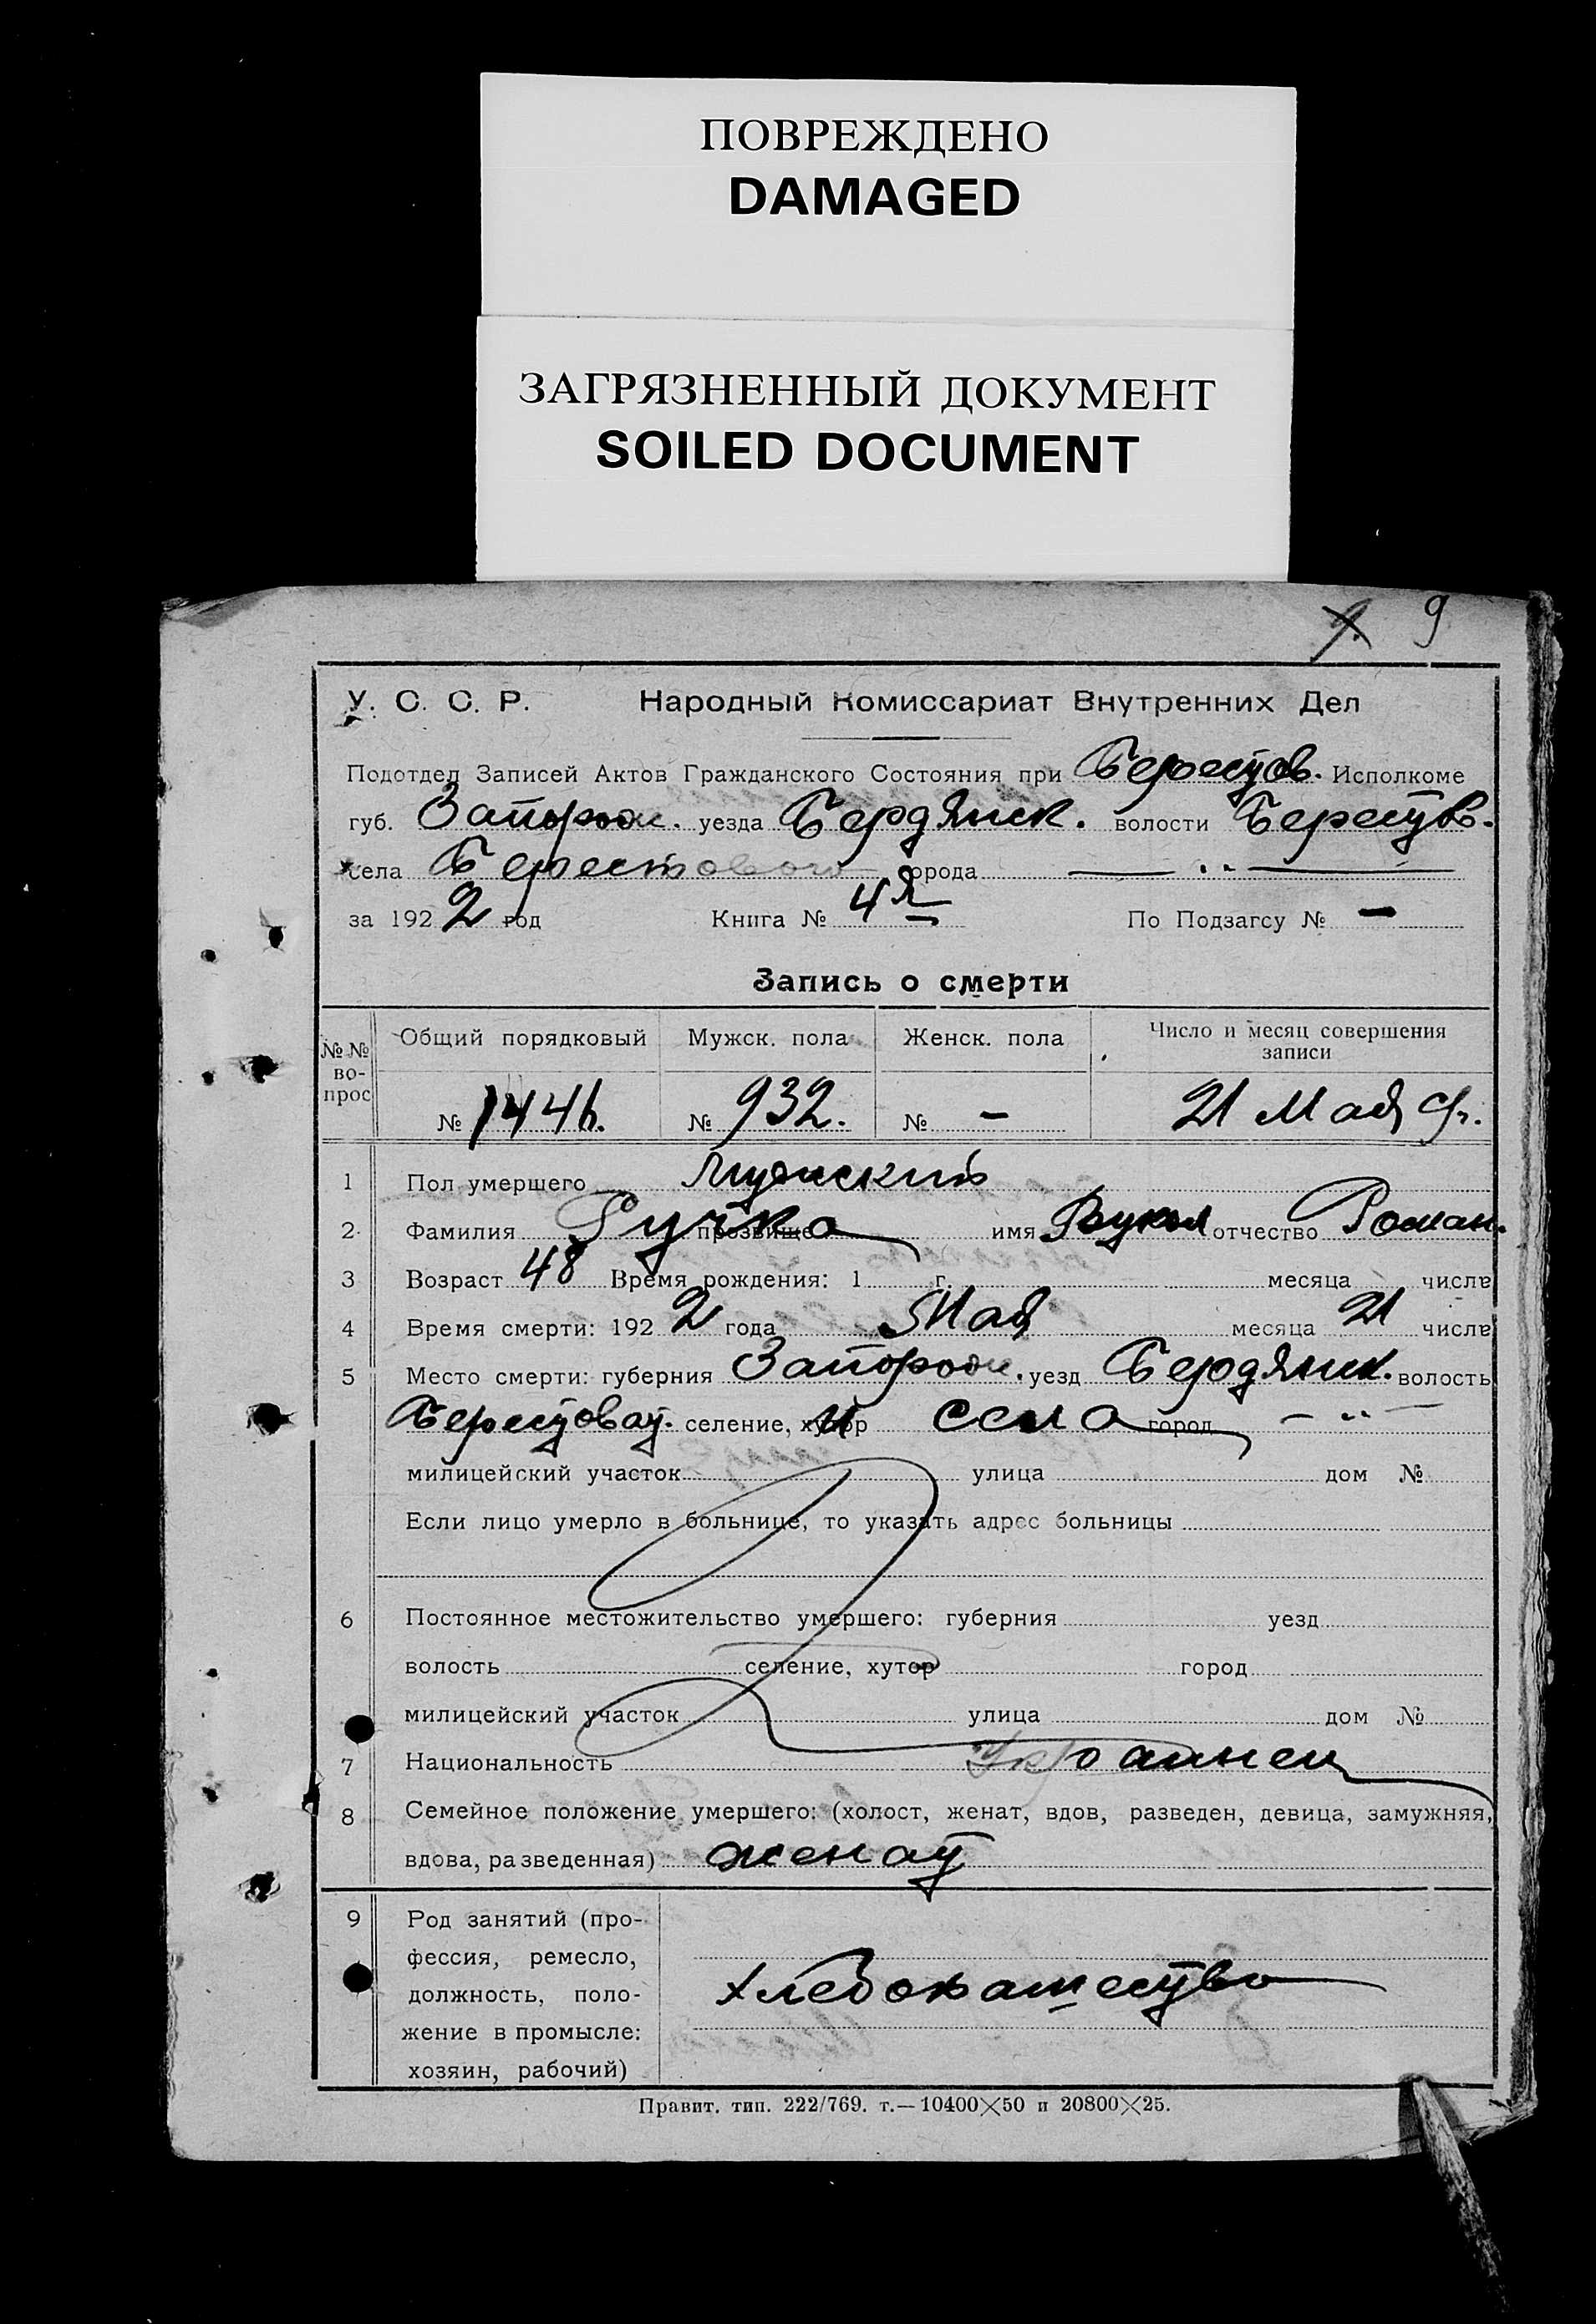 ПОВРЕЖДЕНО
DAMAGED
ЗАГРЯЗНЕННЫЙ ДОКУМЕНТ
SOILED DOCUMENT
9
У. С. С. Р. Народный Комиссариат Внутренних Дел
Подотдел Записей Актов Гражданского Состояния при Берестов. Исполкоме
губ. Запорож. уезда Бердянск. волости Берестов.
села Берестового города — „ —
за 1922 год Книга № 4я По Подзагсу № —
Запись о смерти
№ № во-прос Общий порядковый Мужск. пола Женск. пола Число и месяц совершения записи
№ 1446. № 932. № — 21 Мая
1 Пол умершего Мужский
2 Фамилия Ручка прозвище имя отчество Роман.
3 Возраст 48 Время рождения: 1 г. месяца числа
4 Время смерти: 1922 года Мая месяца 21 числа
5 Место смерти: губерния Запорож. уезд Бердянск. волость
Берестовой. селение, хутор и села город — „ —
милицейский участок улица дом №
Если лицо умерло в больнице, то указать адрес больницы
6 Постоянное местожительство умершего: губерния уезд
волость селение, хутор город
милицейский участок улица дом №
7 Национальность Украинец
8 Семейное положение умершего: (холост, женат, вдов, разведен, девица, замужняя,
вдова, разведенная) женат
9 Род занятий (про-
фессия, ремесло,
должность, поло- хлебопашество
жение в промысле:
хозяин, рабочий)
Правит. тип. 222/769. т.—10400×50 и 20800×25.